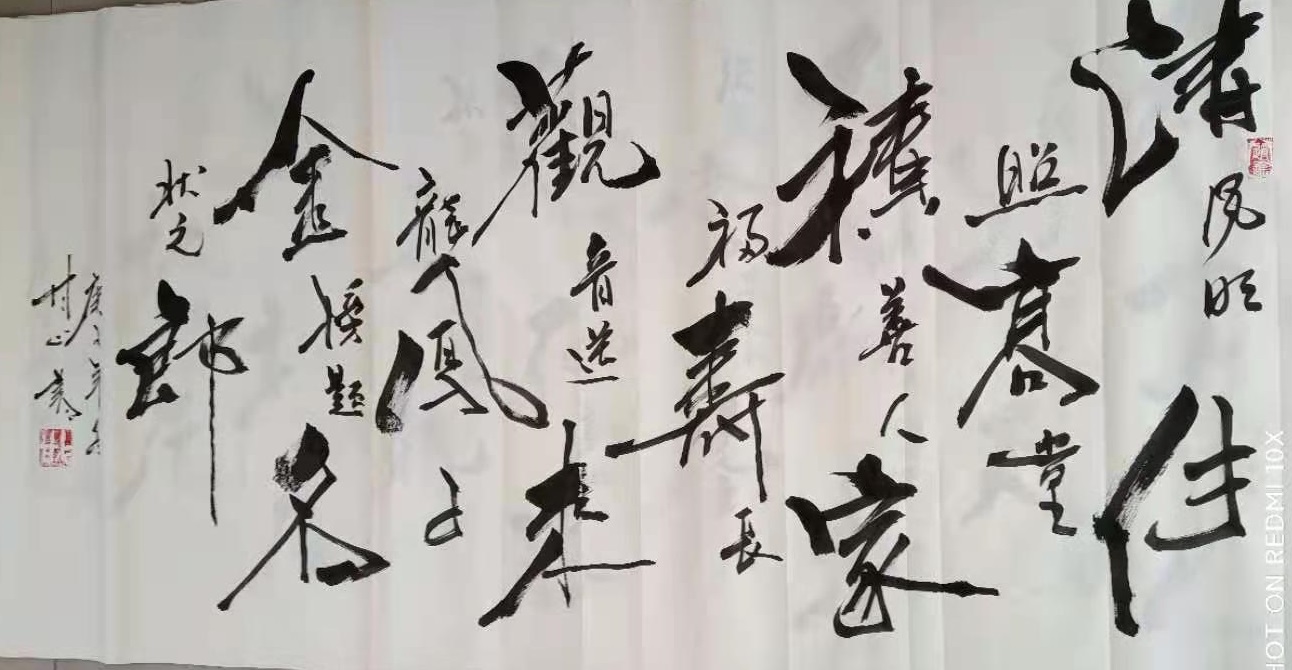 清風明佳
照高堂
積善人家
福壽長
觀音送来
龍鳳子
金榜題名
狀元郎
庚子年冬
HOT ON REDMI 10X